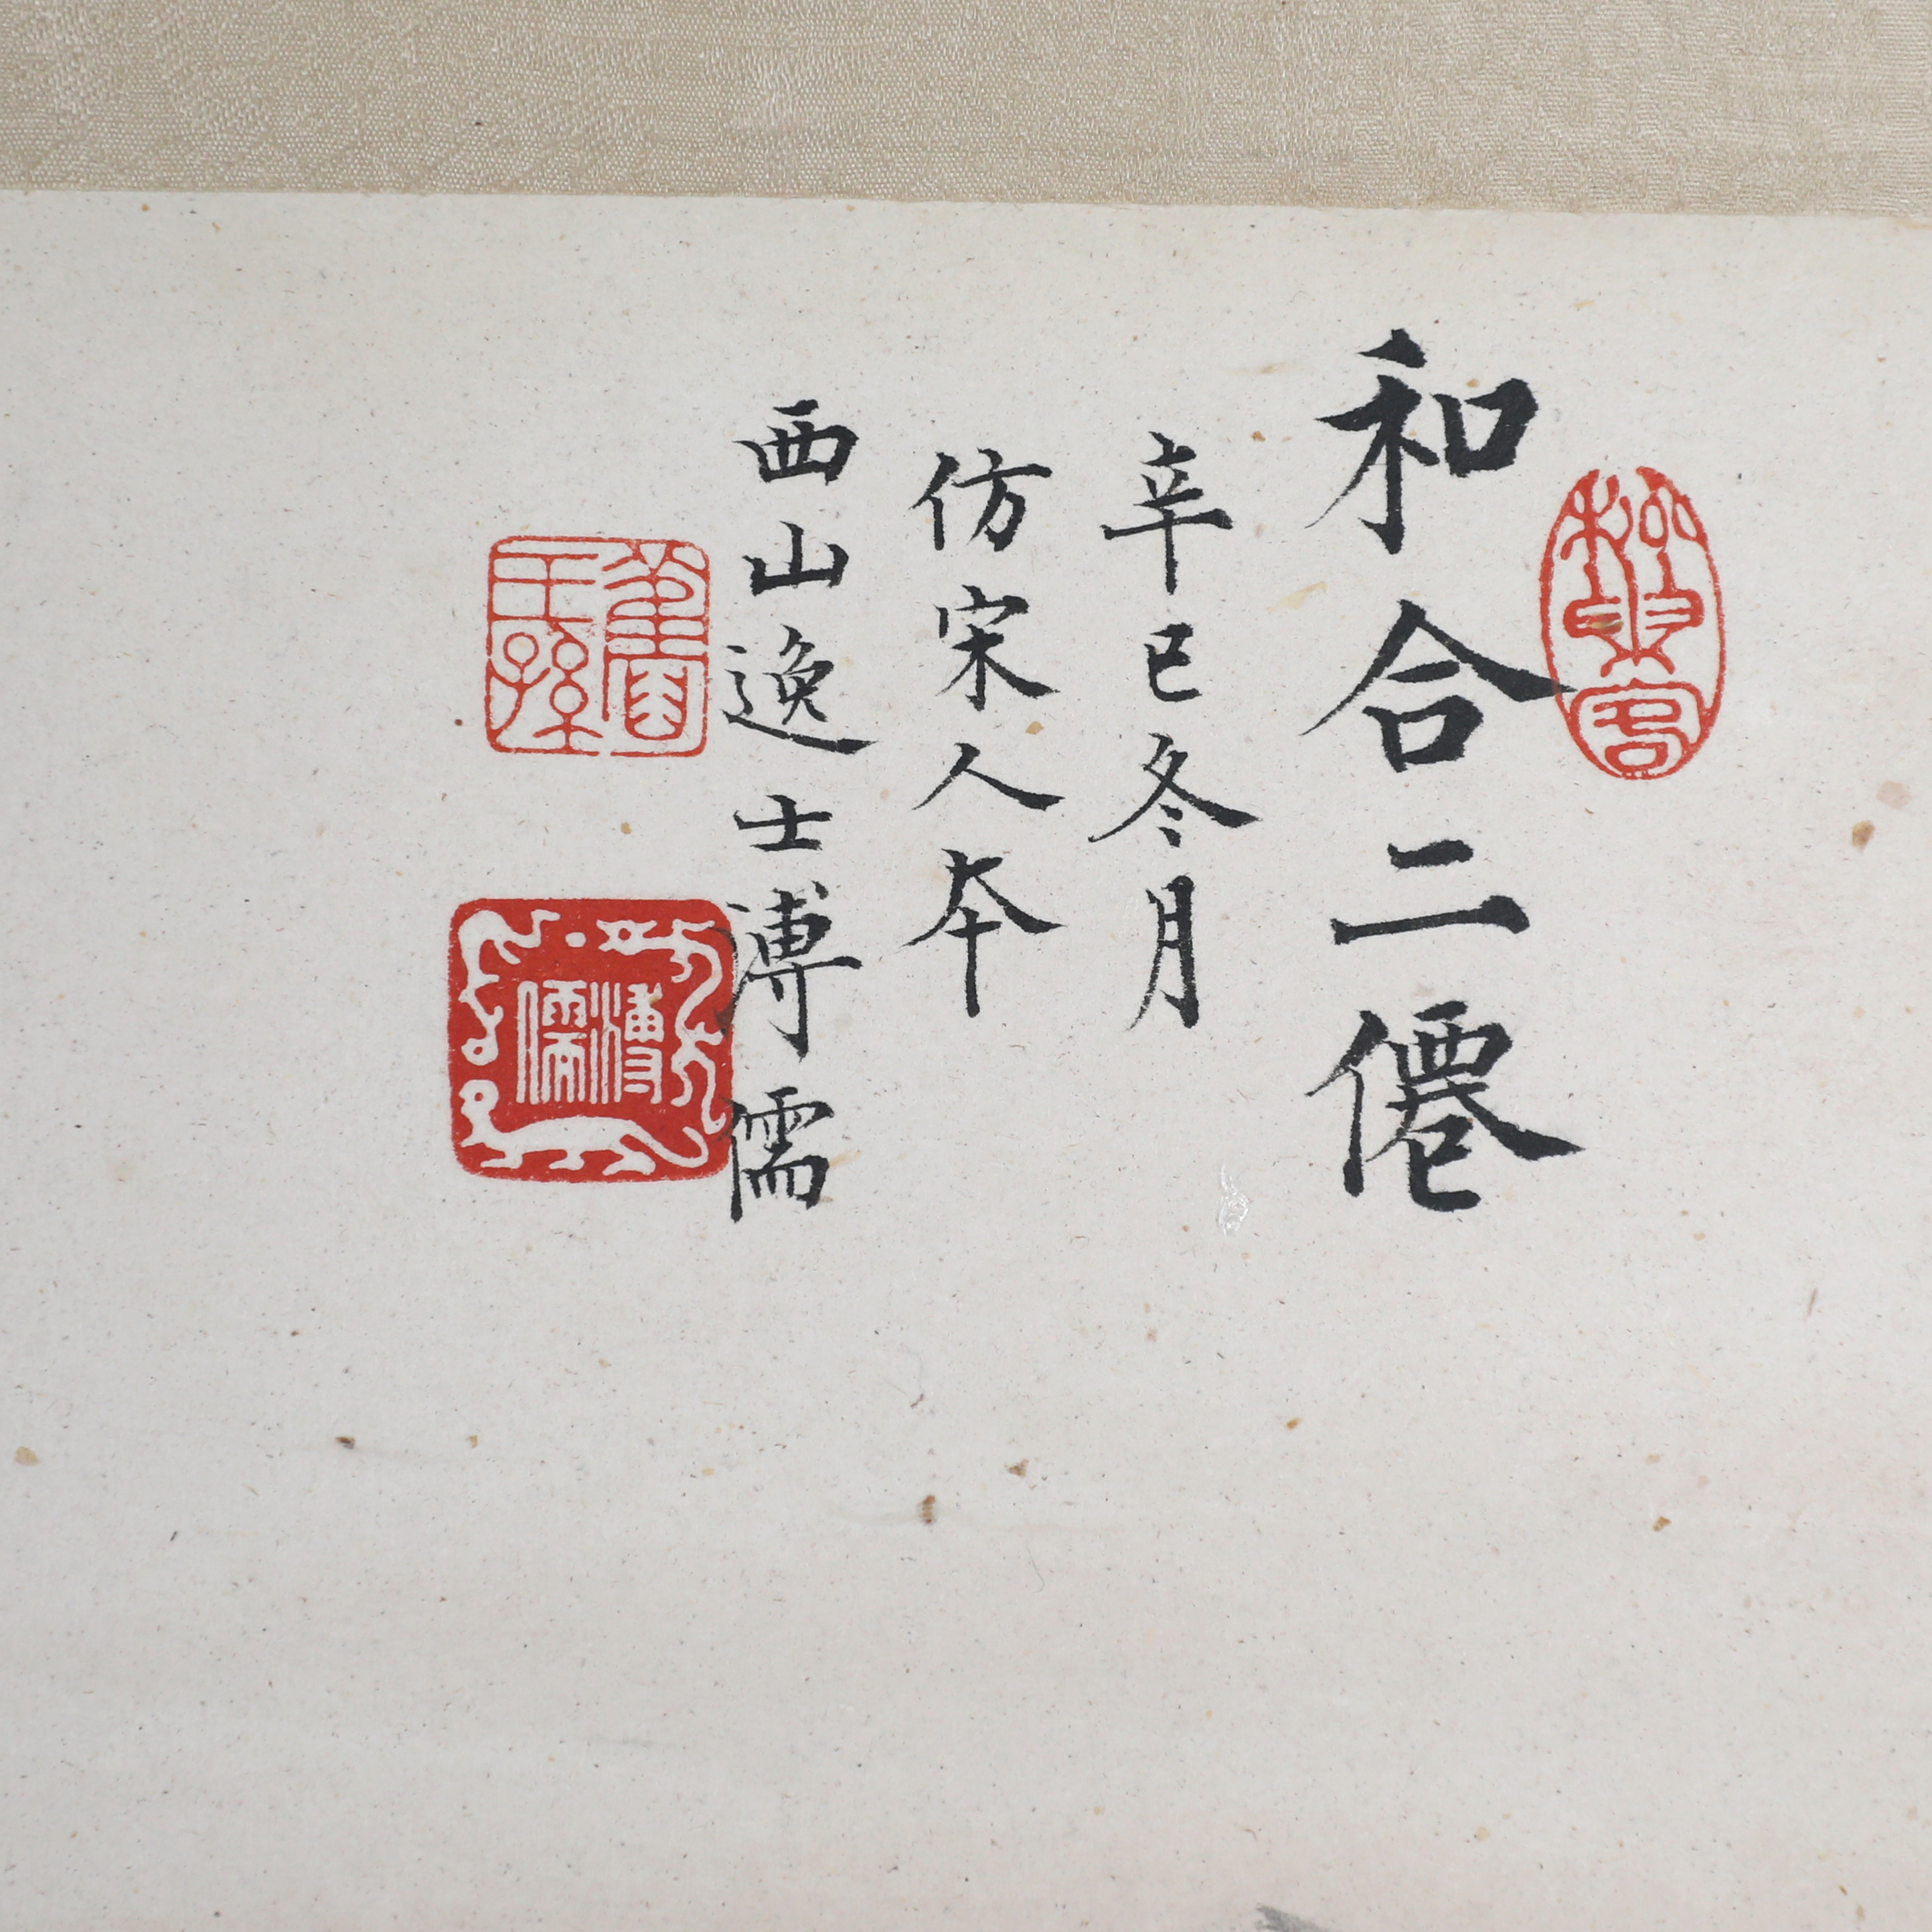 和合二僊
辛巳冬月
仿宋人本
西山逸士溥儒
舊王孫
溥儒